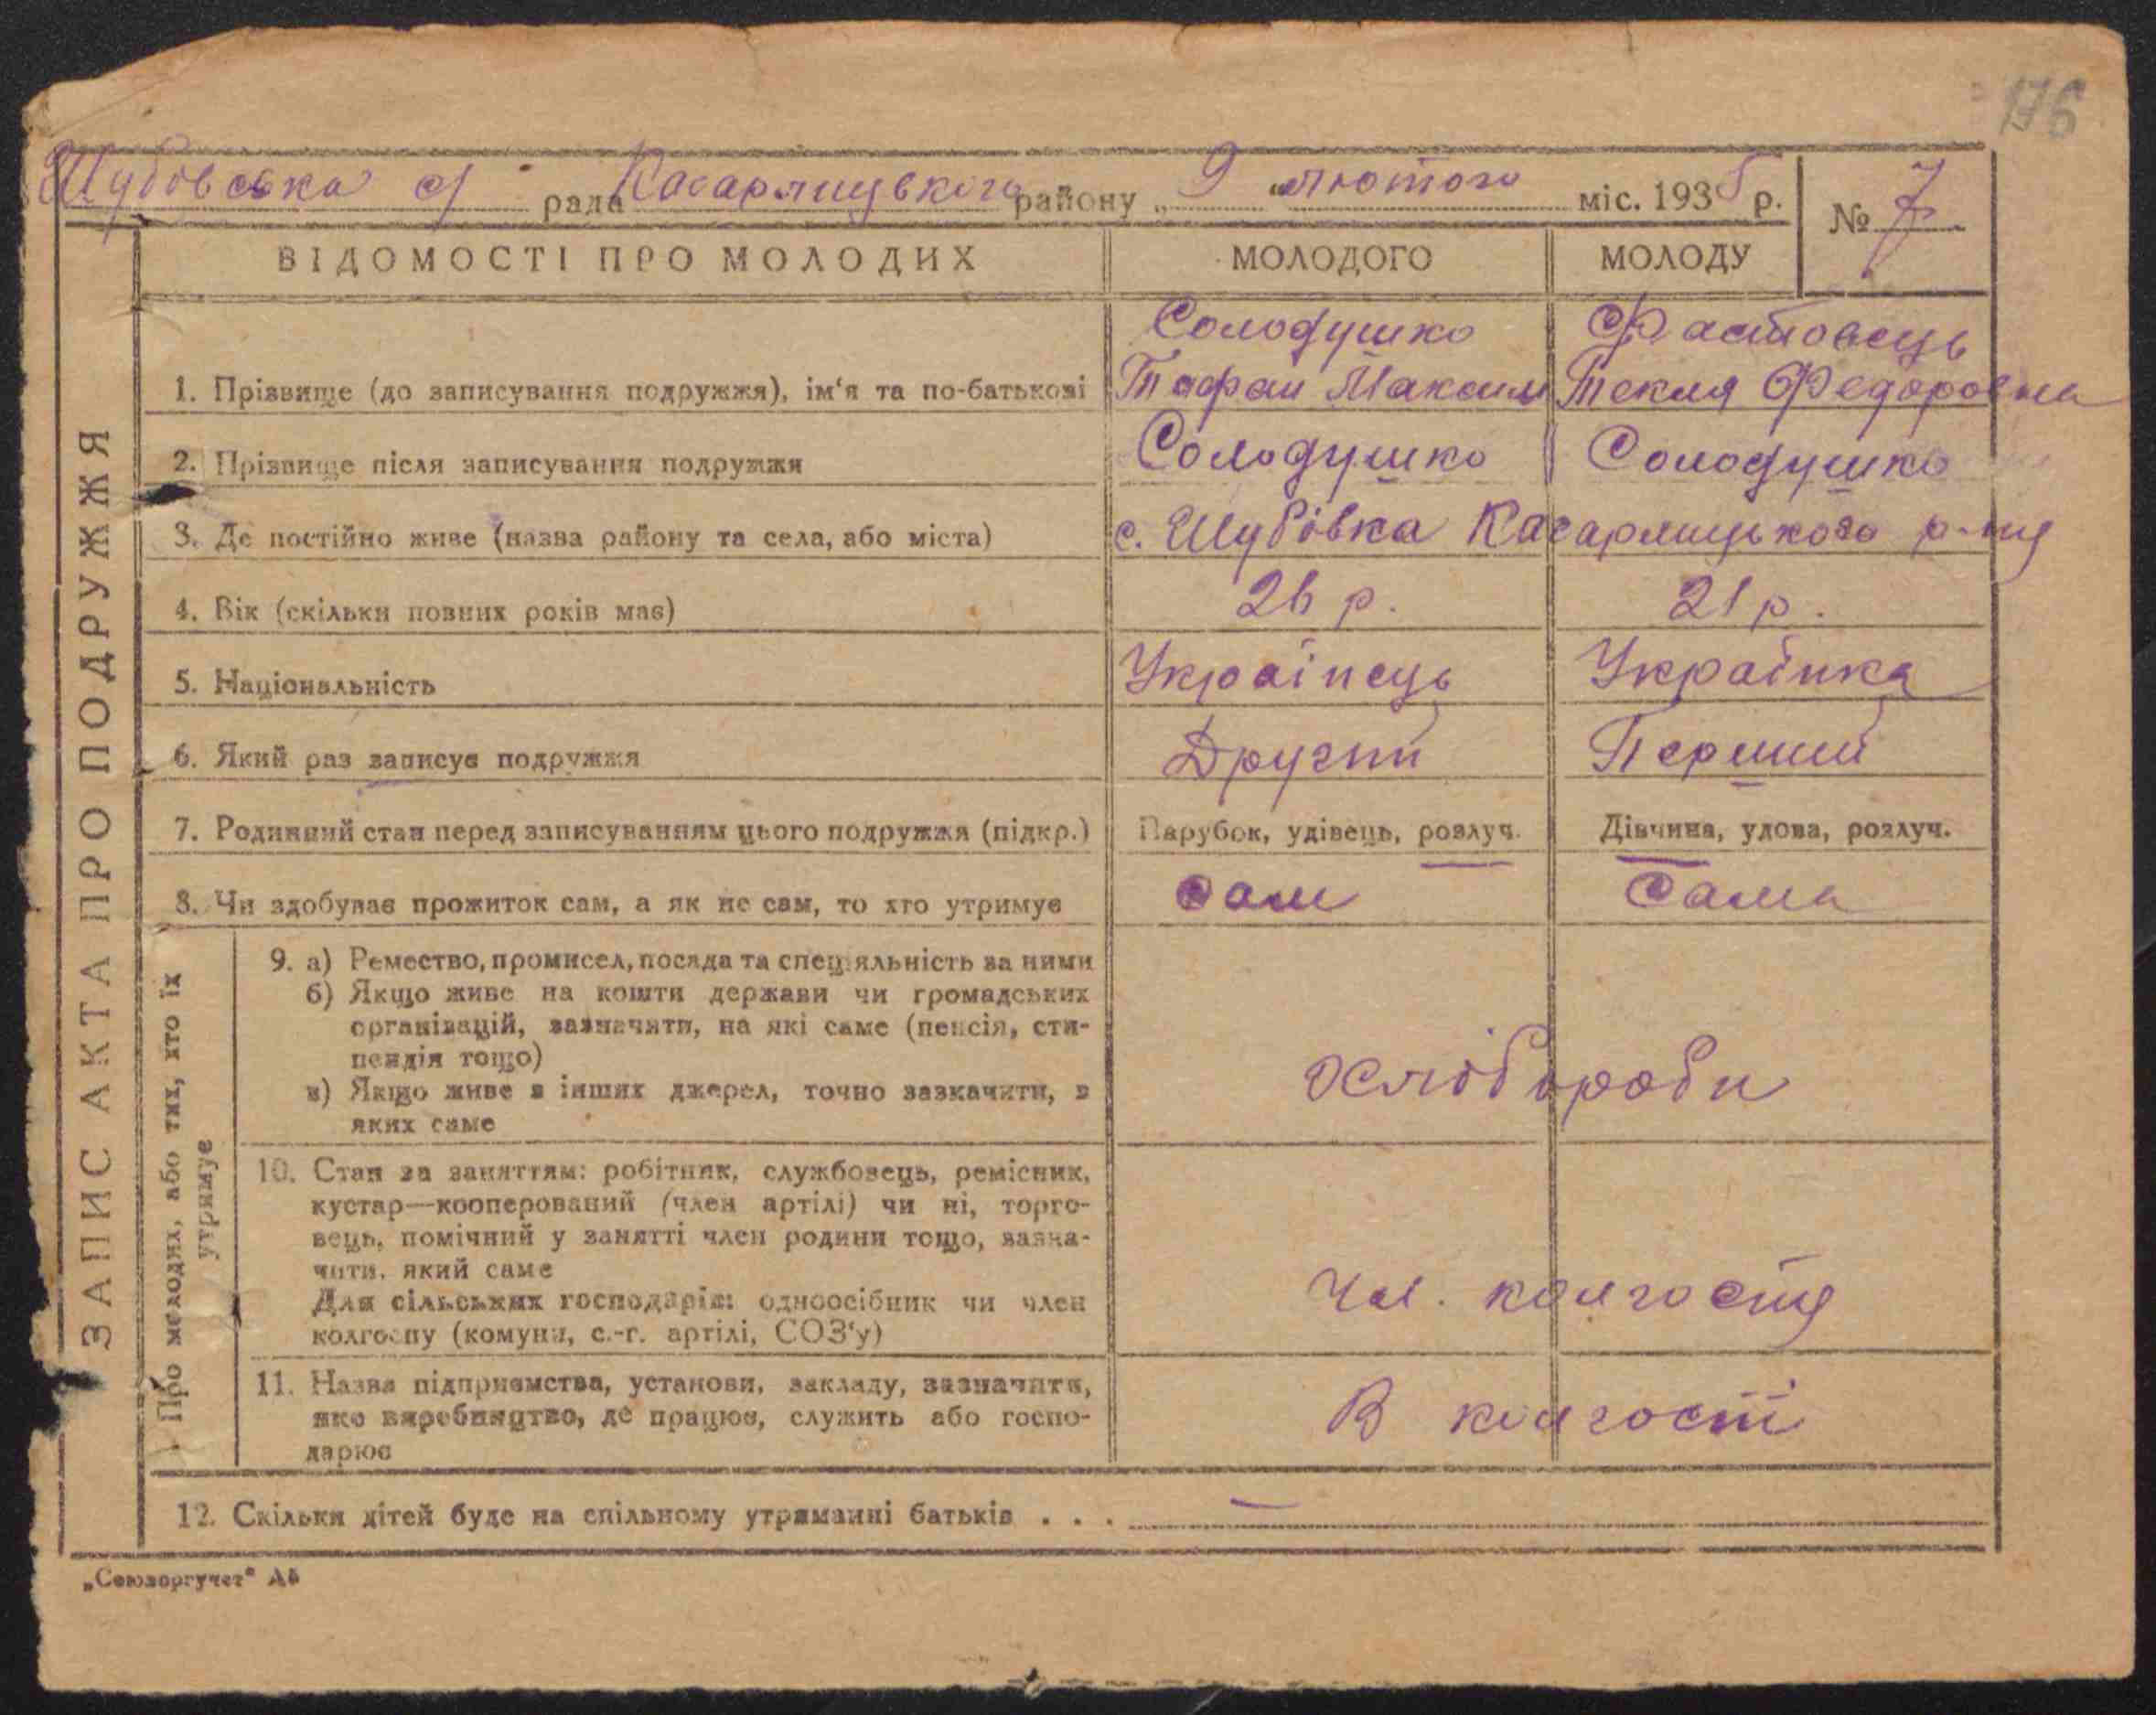 176
Шубовська с/ рада Кагарлицького району „ 9 “ лютого міс. 1935 р.
№ 7
ВІДОМОСТІ ПРО МОЛОДИХ МОЛОДОГО МОЛОДУ
ЗАПИС АКТА ПРО ПОДРУЖЖЯ
Солодушко Фастовець
1. Прізвище (до записування подружжя), ім‘я та по-батькові Максим Текля Федоровна
2. Прізвище після записування подружжя Солодушко Солодушко
3. Де постійно живе (назва району та села, або міста) с. Шубівка Кагарлицького р-ну
4. Вік (скільки повних років має) 26 р. 21 р.
5. Національність Українець Українка
6. Який раз записує подружжя Другий Перший
7. Родинний стан перед записуванням цього подружжя (підкр.) Парубок, удівець, розлуч. Дівчина, удова, розлуч.
8. Чи здобуває прожиток сам, а як не сам, то хто утримує сам Сама
Про молодих, або тих, хто їх
утримує
9. а) Ремество, промисел, посада та спеціяльність за ними
б) Якщо живе на кошти держави чи громадських
організацій, зазначити, на які саме (пенсія, сти-
пендія тощо)
в) Якщо живе з інших джерел, точно зазначити, з
яких саме
Хлібороби
10. Стан за заняттям: робітник, службовець, ремісник,
кустар—кооперований (член артілі) чи ні, торго-
вець, помічний у занятті член родини тощо, зазна-
чити, який саме
Для сільських господарів: одноосібник чи член
колгоспу (комуни, с.-г. артілі, СОЗ‘у)
Чл. колгоспу
11. Назва підприємства, установи, закладу, зазначити,
яке виробництво, де працює, служить або госпо-
дарює
В колгоспі
12. Скільки дітей буде на спільному утриманні батьків . . . —
„Союзоргучет“ А5